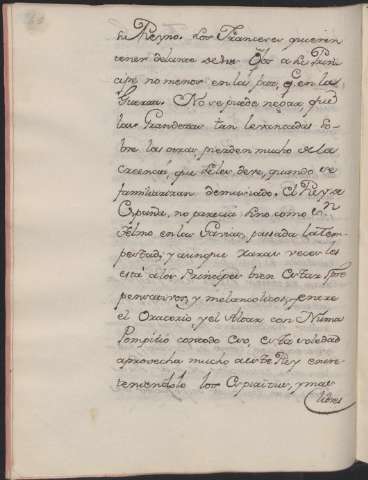 de Reyno. Los Franceses quieren
tener delante de los Ojos a su Prin-
cipe no menos en la paz, q. en las
Guerras. No se puede negar, que
las Grandezas tan levantadas so-
bre las otras, pierden mucho de la
creencia, que se les deve, quando se
familiarizan demasiado. El Rey de
España, no parecia sino como Sn.
Telmo en las Gavias, pasada la tem-
pestad; y aunque raras veces les
está a los Principes bien estar
pensativos, y melancolicos, entre
el Oratorio y el Altar con Numa
Pompilio con todo eso, esta soledad
aprovecha mucho a este Rey entre-
teniendolo los Espiritus, y mas
libres